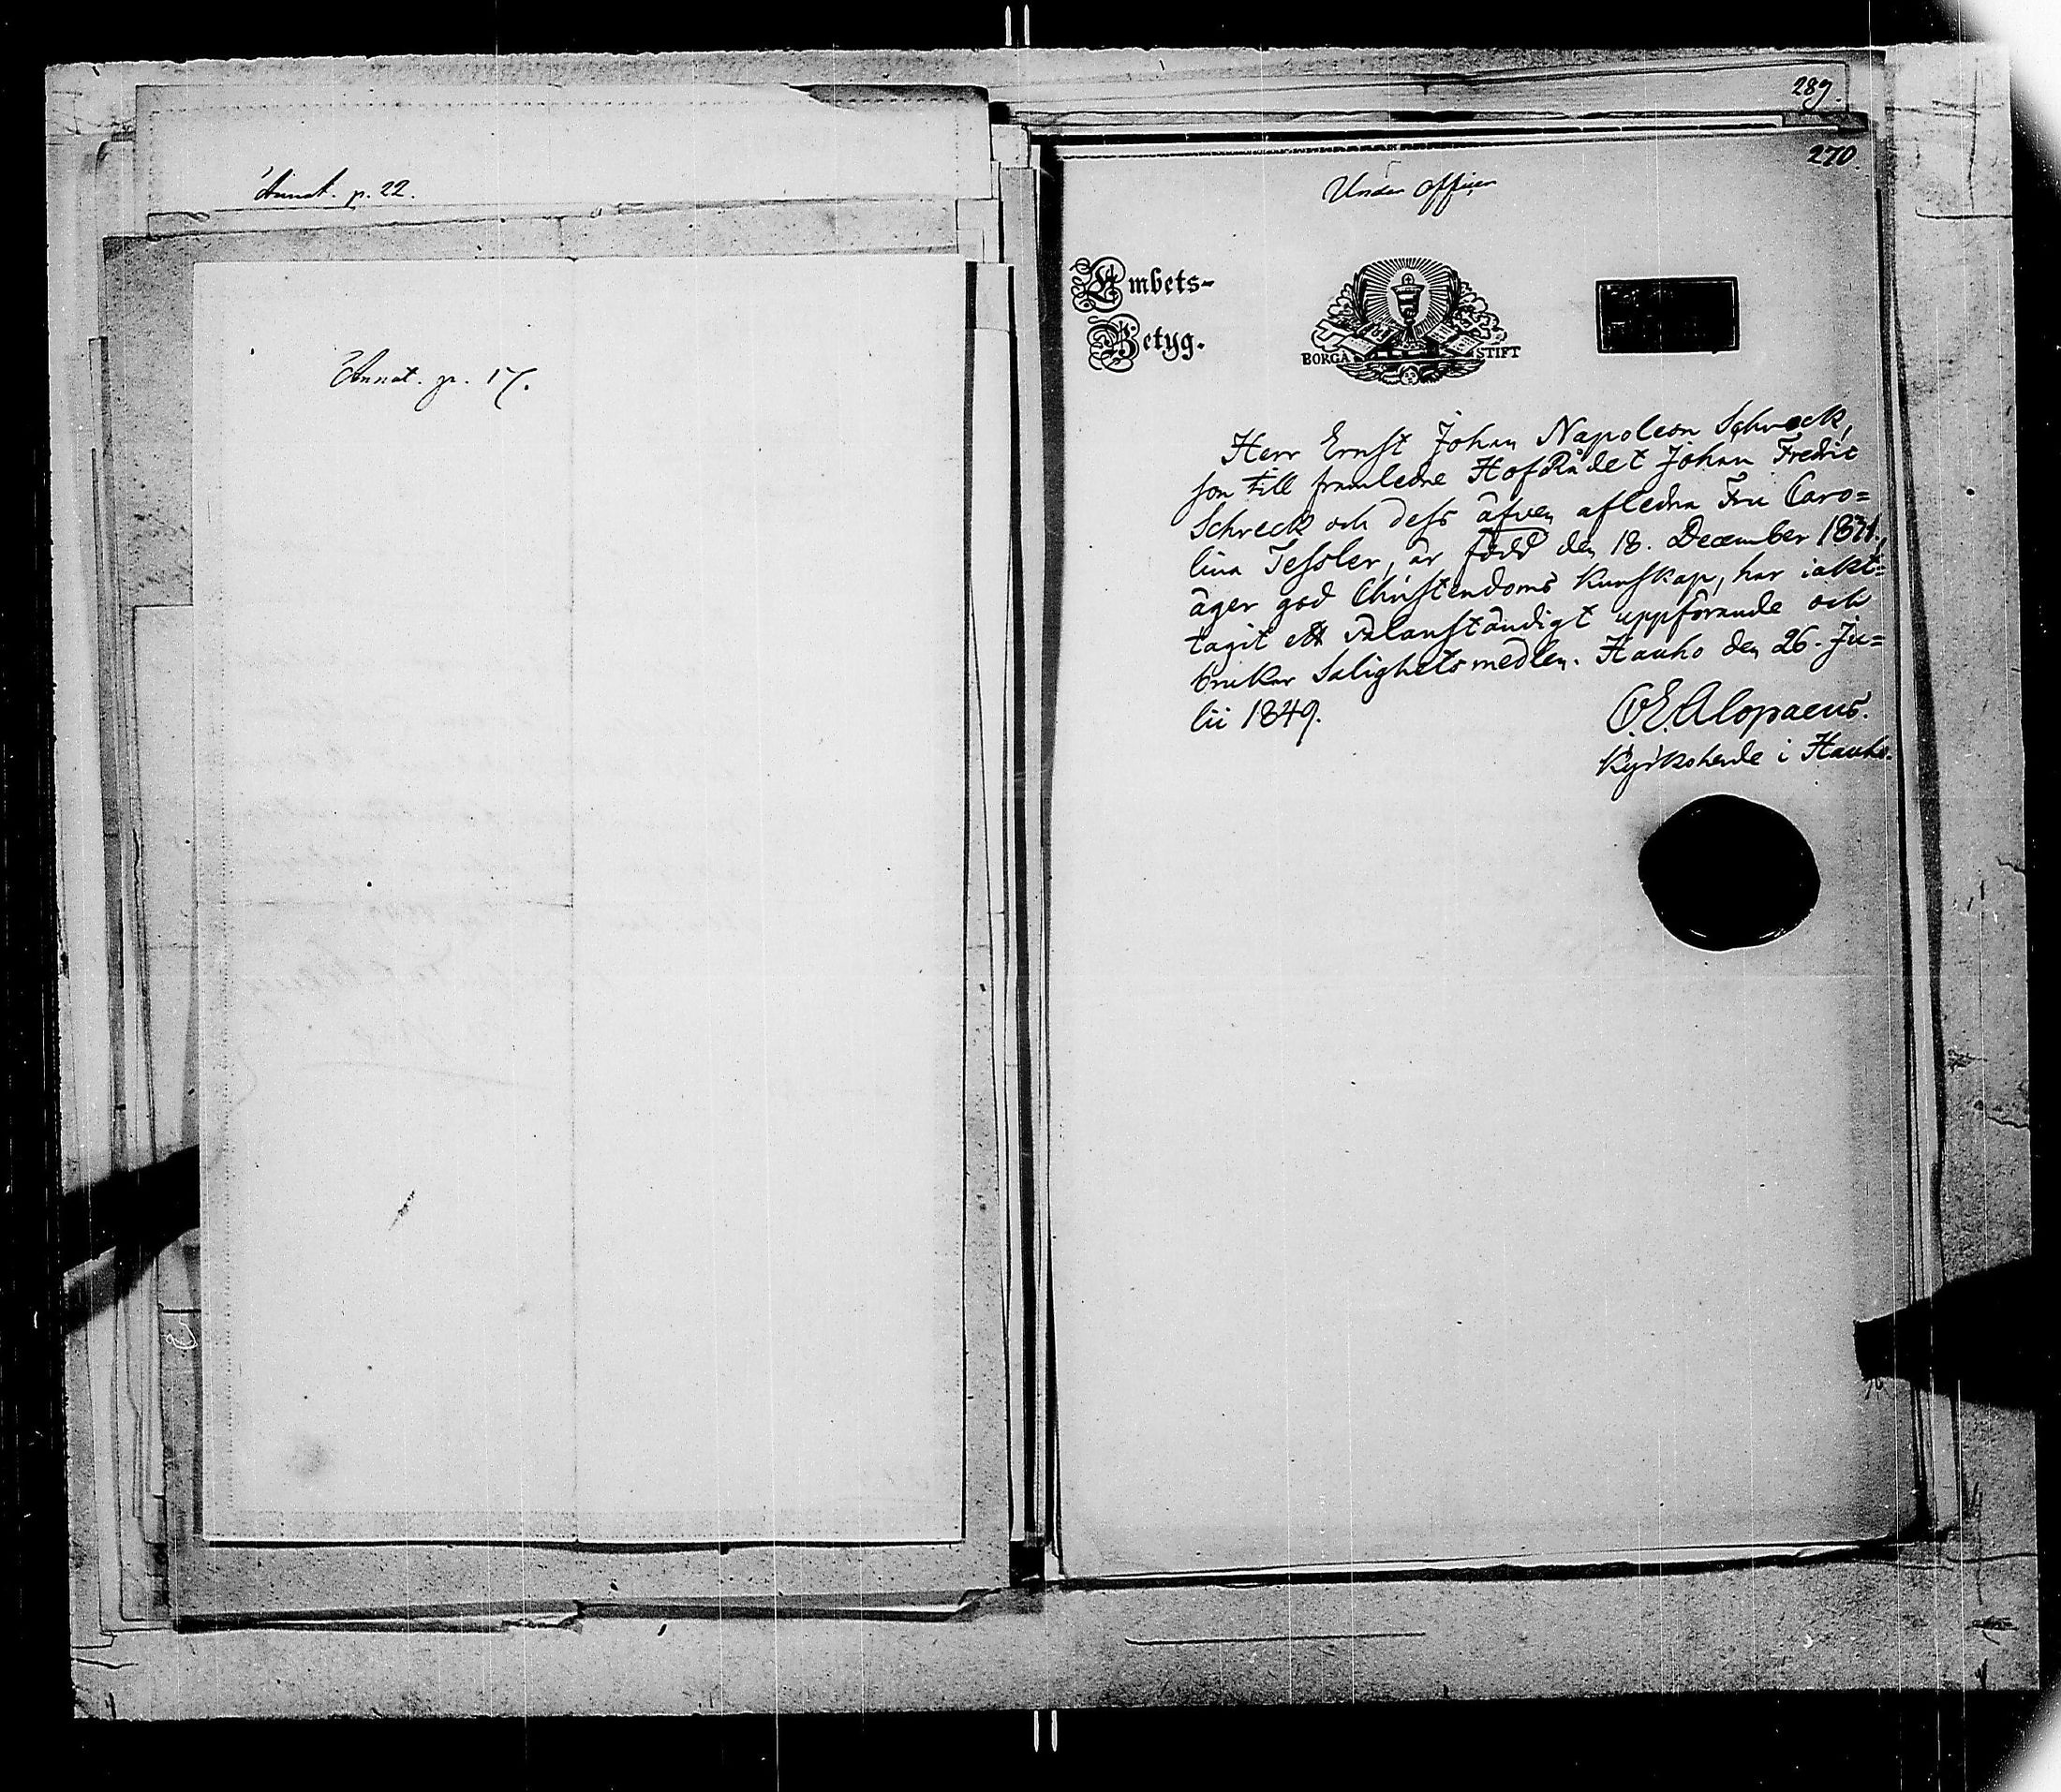 Annot. p. 22.
Annot. p. 17.
289.
270.
Under officer
Embets-
Betyg.
BORGA STIFT
Herr Ernst Johan Napoleon Schreck,
son till framledne HofRådet Johan Fredric
Schreck och dess äfven afledna Fru Caro=
lina Tessler, är född den 18. December 1831,
äger god Christendoms kunskap, har iakt=
tagit ett välanständigt uppförande och
brukar Salighetsmedlen. Hauho den 26. Ju=
lii 1849.
C. E. Alopaeus.
Kyrkoherde i Hauho.